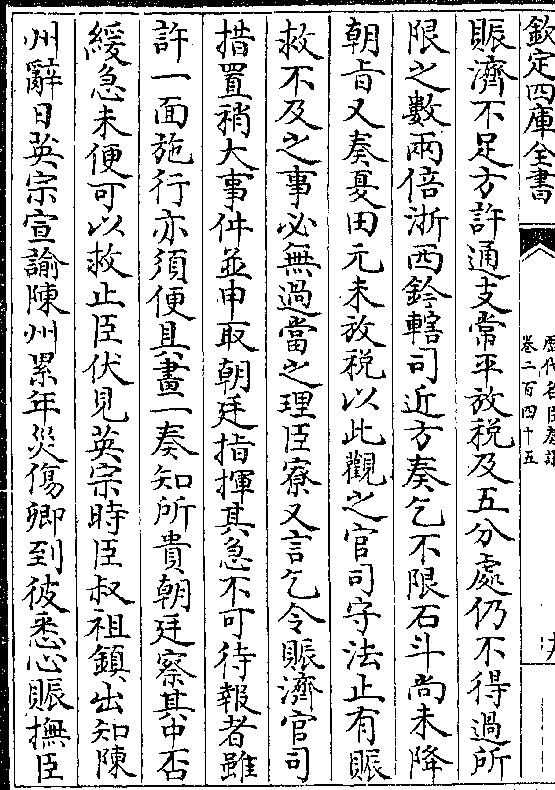 欽定四庫全書
歷代名臣奏議
卷二百四十五
賑濟不足方許通支常平放税及五分處仍不得過所
限之數兩倍浙西鈐轄司近方奏乞不限石斗尚未降
朝旨又奏夏田元未放税以此觀之官司守法止有賑
救不及之事必無過當之理臣寮又言乞令賑濟官司
措置稍大事件並申取朝廷指揮其急不可待報者雖
許一面施行亦須便具畫一奏知所貴朝廷察其中否
緩急未便可以救止臣伏見英宗時臣叔祖鎮出知陳
州辭日英宗宣諭陳州累年災傷卿到彼悉心賑撫臣